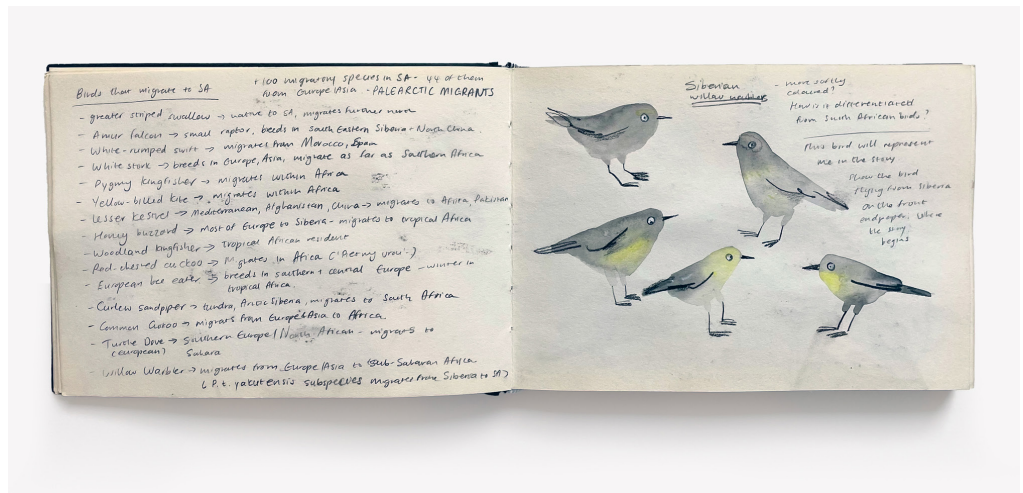 Birds that migrate to SA
+100 migratory species in SA - 44 of them
from Europe/Asia - PALEARCTIC MIGRANTS
- greater striped swallow → native to SA, migrates further north
- Amur falcon → small raptor, breeds in South Eastern Siberia - North China.
- White-rumped swift → migrates from Morocco, Spain
- White stork → breeds in Europe, Asia, migrate as far as Southern Africa
- Pygmy kingfisher → migrates within Africa
- Yellow-billed kite → migrates within Africa
- Lesser kestrel → Mediterranean, Afghanistan, China → migrates to Africa, Pakistan
- Honey buzzard → Most of Europe to Siberia - migrates to tropical Africa
- Woodland kingfisher → Tropical African resident
- Red-chested cuckoo → Migrates in Africa
- European bee eater → breeds in southern + central Europe - winter in
tropical Africa.
- Curlew sandpiper → tundra, Arctic Siberia, migrates to South Africa
- Common Cuckoo → migrats from Europe & Asia to Africa.
- Turtle Dove → Southern Europe / North African - migrats to
(european) Sahara
- Willow Warbler → migrates from Europe/Asia to Sub-Saharan Africa
(P.t. yakutensis subspecies migrates from Siberia to SA)
Siberian
willow warbler
- more softly
coloured?
How is it differentiated
from South African birds?
This bird will represent
me in the story
Show the bird
flying from Siberia
on the front
endpaper, where
the story
begins